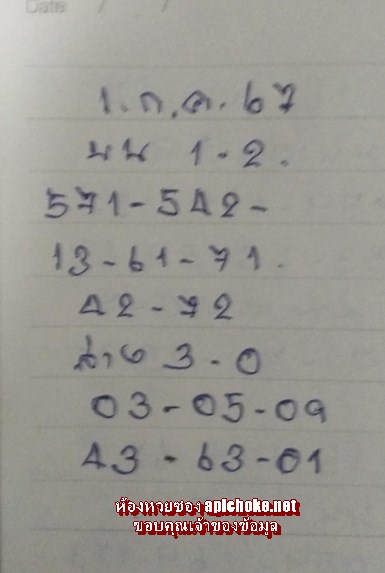 Date / /
1.ก.ค.67
บน 1-2.
571-542-
13-61-71.
42-72
ล่าง 3-0
03-05-09
43-63-01
ห้องหวยซอง aplchoke.net
ขอบคุณเจ้าของข้อมุล